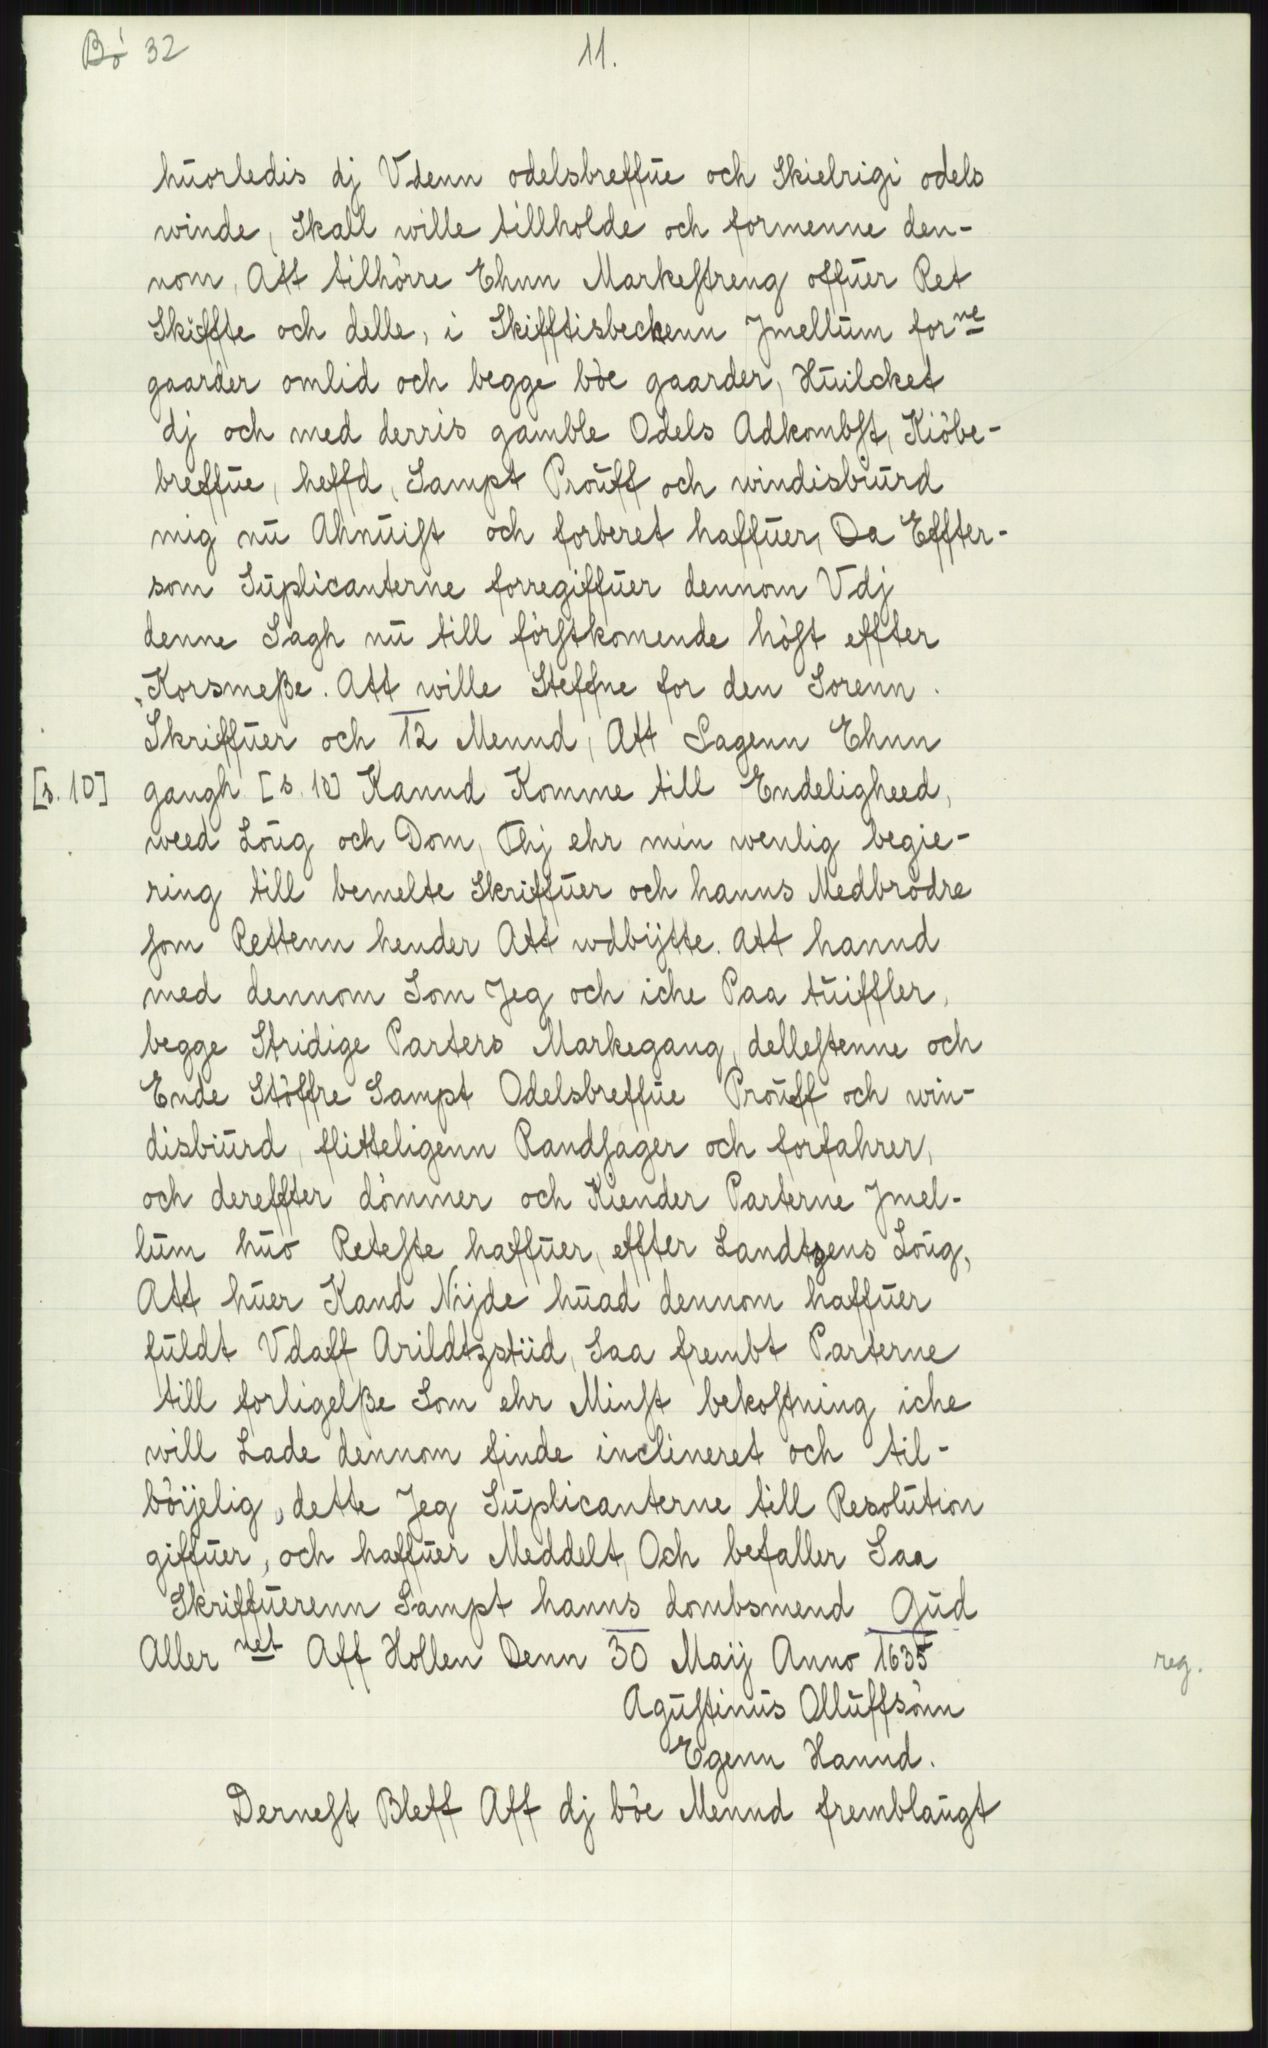 Bö 32
11.
huorledis dj Vdenn odelsbreffue och Skielrigi odels
winde, Skall wille tillholde och formenne den-
nom, Att tilhörre Ehnn Markestreng offuer Ret
Skiffte och delle, i Skifftisbeckenn Jmellum forne
gaarder omlid och begge böe gaarder, Huilcket
dj och med derris gamble Odels Adkombst, Kiöbe-
breffue, heffd, Sampt Prouff och windisbiurd
mig nu Ahnuist och forberet haffuer, Da Effter-
som Suplicanterne forregiffuer dennom Vdj
denne Sagh nu till förstkomende höst effter
Korsmeße. Att wille Steffne for den Sorenn.
Skriffuer och 12 Mennd, Att Sagenn Ehnn
[s. 10] gangh [s. 10] Kannd Komme till Endeligheed,
weed Loug och Dom, Thj ehr min wenlig begie-
ring till bemelte Skriffuer och hanns Medbrödre
som Rettenn hender Att wdbÿtte. att hannd
med dennom Som Jeg och iche Paa tuiffler,
begge Stridige Parters Markegang, dellestenne och
Ende Stöffre Sampt Odelsbreffue Prouff och win-
disbiurd, flitteligenn Randsager och forfahrer,
och dereffter dömmer och Kiender Parterne Jmel-
lum huo Reteste haffuer, effter Landtzens Loug,
Att huer Kand Nijde huad dennom haffuer
fuldt Vdaff Arildtzstiid, Saa frembt Parterne
till forligelße Som ehr Minst bekostning iche
will Lade dennom finde inclineret och til-
böijelig, dette Jeg Suplicanterne till Resolution
giffuer, och haffuer Meddelt, Och befaller Saa
Skriffuerenn Sampt hanns dombsmend Gud
Aller net Aff Hollen Denn 30 Maij Anno 1635
reg.
Agustinus Olluffsönn
Egenn Hannd.
Dernest Bleff Aff dj böe Mennd fremblaugt